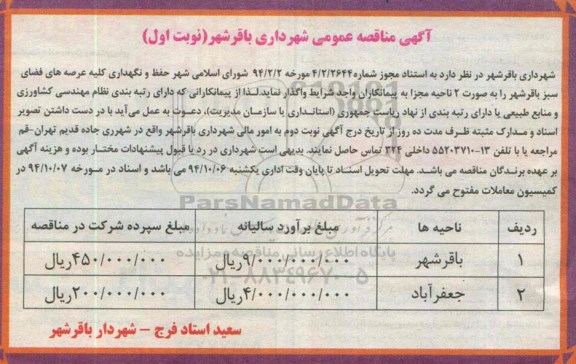 آگهی مناقصه عمومی شهرداری باقرشهر(نوبت اول)
شهرداری باقرشهر در نظر دارد به استناد مجوز شماره۴/۲/۲۶۴۴ مورخه ۹۴/۲/۲ شورای اسلامی شهر حفظ و نگهداری کلیه عرصه های فضای
سبز باقرشهر را به صورت ۲ ناحیه مجزا به پیمانکاران واجد شرایط واگذار نماید لـذا از پیمانکارانی که دارای رتبه بندی نظام مهندسی کشاورزی
و منابع طبیعی یا دارای رتبه بندی از نهاد ریاست جمهوری (استانـداری یا سازمـان مدیریت)، دعـوت به عمل می آید با در دست داشتن تصویر
اسناد و مـدارک مثبته ظـرف مدت ده روز از تاریخ درج آگهی نوبت دوم به امور مالی شهرداری باقرشهر واقع در شهرری جاده قدیم تهران-قم
مراجعه یا با تلفن ۱۳-۵۵۲۰۳۷۱۰ داخلی ۳۲۴ تماس حاصل نمایند. بدیهی است شهرداری در رد یا قبول پیشنهادات مختـار بوده و هزینه آگهی
بر عهده برنـدگان مناقصه می باشـد. مهلت تحویل اسنـاد تا پایان وقت اداری یکشنبه ۹۴/۱۰/۰۶ می باشد و اسناد در مـورخه ۹۴/۱۰/۰۷ در
کمیسیون معاملات مفتوح می گردد.
ParsNamadData
پایگاه اطلاع رسانی مناقصه و مزایده
۰۲۱-۸۸۳۴۹۶۷۰-۵
ردیف ناحیه ها مبلغ برآورد سالیانه مبلغ سپرده شرکت در مناقصه
۱ باقرشهر ۹/۰۰۰/۰۰۰/۰۰۰ریال ۴۵۰/۰۰۰/۰۰۰ریال
۲ جعفرآباد ۴/۰۰۰/۰۰۰/۰۰۰ریال ۲۰۰/۰۰۰/۰۰۰ریال
سعید استاد فرج – شهردار باقرشهر